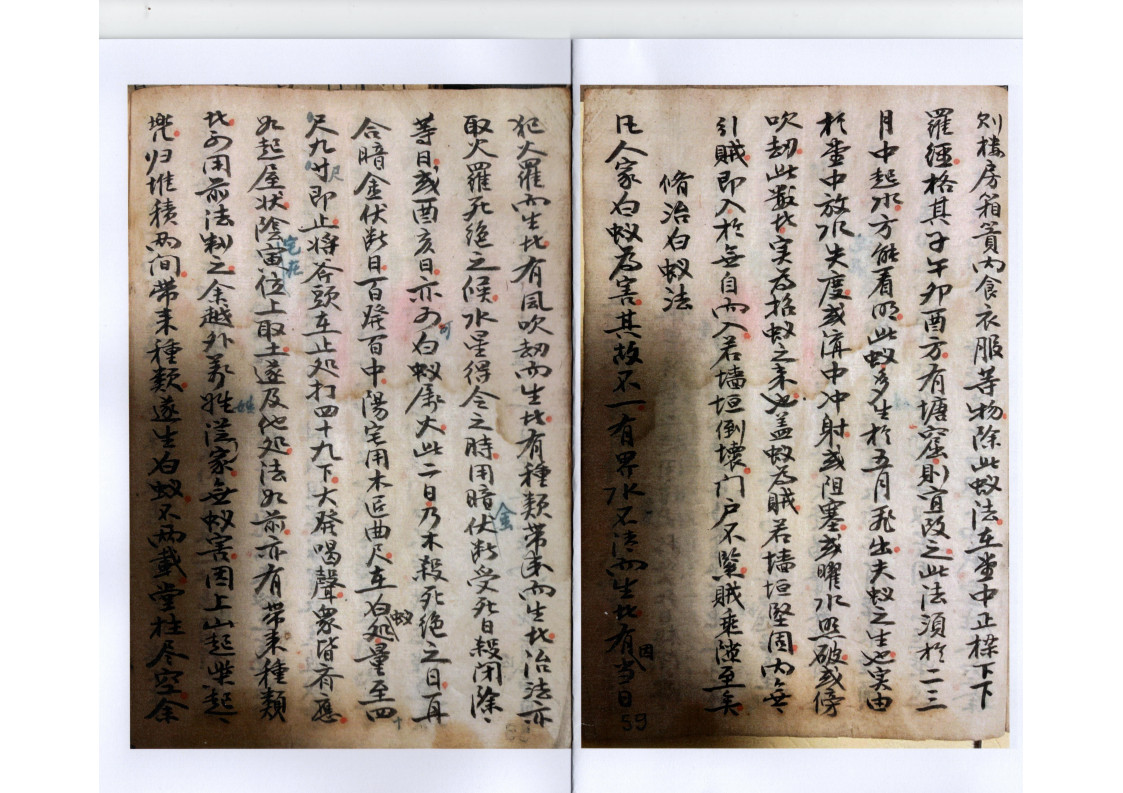 则楼房箱賁内食衣服等物除此蚁法在堂中正樑下下
羅經格其子午卯酉方有塘窟則宜改之此法須於二三
月中起水方能看明此蚁多生於五月飛出夫蚁之生也实由
於堂中放水失度或溝中冲射或阻塞或曜水照破或傍
吹刼此数比实為招蚁之来也盖蚁為賊若墙垣堅固内無
引賊即入於無自而入若墙垣倒壞门户不緊賊乘隙至矣
脩治白蚁法
凡人家白蚁為害其故不一有界水不清而生比有因当日
59
犯火羅而生比有風吹刼而生比有種類带来而生比治法亦
取火羅死绝之候水星得令之時用暗金伏断受死日殺闭除
等日或酉亥日亦可白蚁属火此二日乃木殺死绝之日再
合暗金伏断日百發百中陽宅用木匠曲尺在白蚁处量至四
尺九寸即止将斧頭在止处打四十九下大發喝聲衆皆齊應
如起屋状陰宅在寅位上取土遂及他处法如前亦有带来種類
比可用前法制之余越外养牲從家無蚁害因上山起柴起
兜归堆積两间带来種類遂生白蚁不两載堂柱尽空余